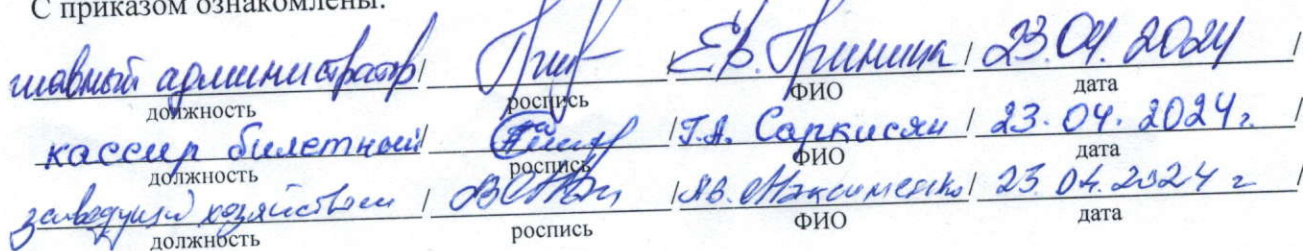 С приказом ознакомлены:
главный администратор / / Е.В. / 23.04.2024 /
должность роспись ФИО дата
кассир билетный / / Т.А. Саркисян / 23.04.2024г. /
должность роспись ФИО дата
заведующий хозяйством / / Максименко / 23.04.2024 г /
должность роспись ФИО дата